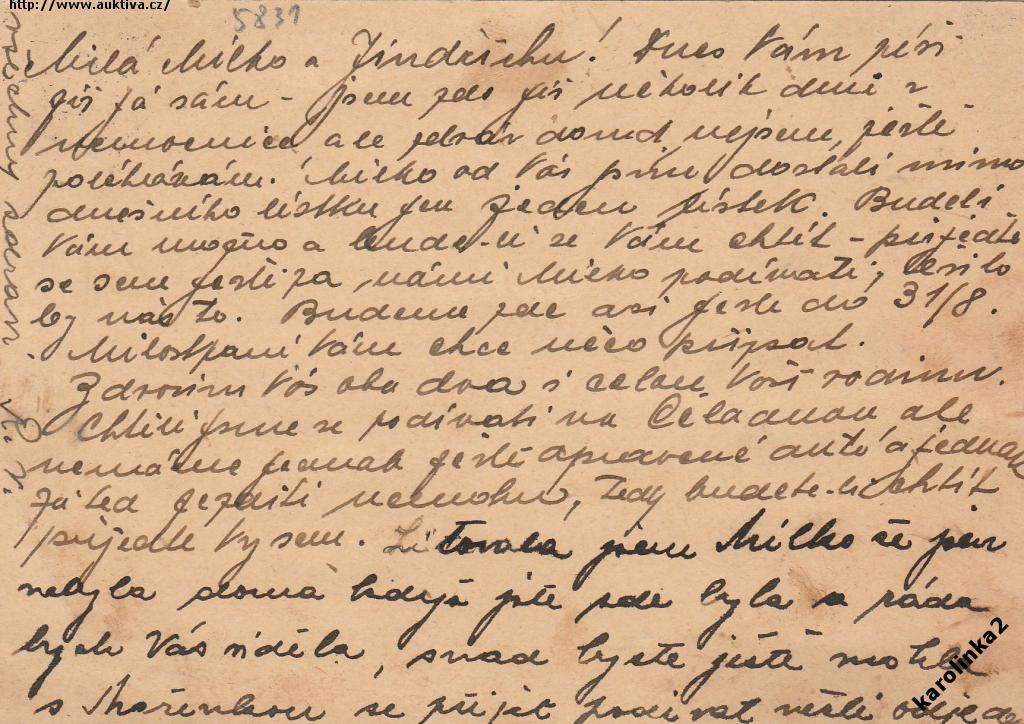 http://www.auktiva.cz/
5831
Milá Milko a Jindřichu! Dnes Vám píši
již já sám - jsem zde již několik dní v
nemocnici ale zdráv nejsem, ještě
poléhávám. Milko od Vás jsme dostali mimo
dnešního lístku jen jeden lístek. Budeli
Vám možno a bude-li se Vám chtít - přijeďte
se sem ještě za námi Milko podívati, těšilo
by nás to. Budeme zde asi ještě do 31/8.
Milostpaní Vám chce něco připsat.
Zdravím Vás oba dva i celou Vaši rodinu.
Chtěli jsme se podívati na Čeladnou ale
nemáme jednak ještě spravené auto a jednak
já teď jezditi nemohu, tedy budete-li chtít
přijeďte Vy sem. Litovala jsem Milko že jsem
nebyla doma když jste zde byla a ráda
bych Vás viděla, snad byste ještě mohla
s Mařenkou se přijet podívat
všechny zdraví
karolinka2